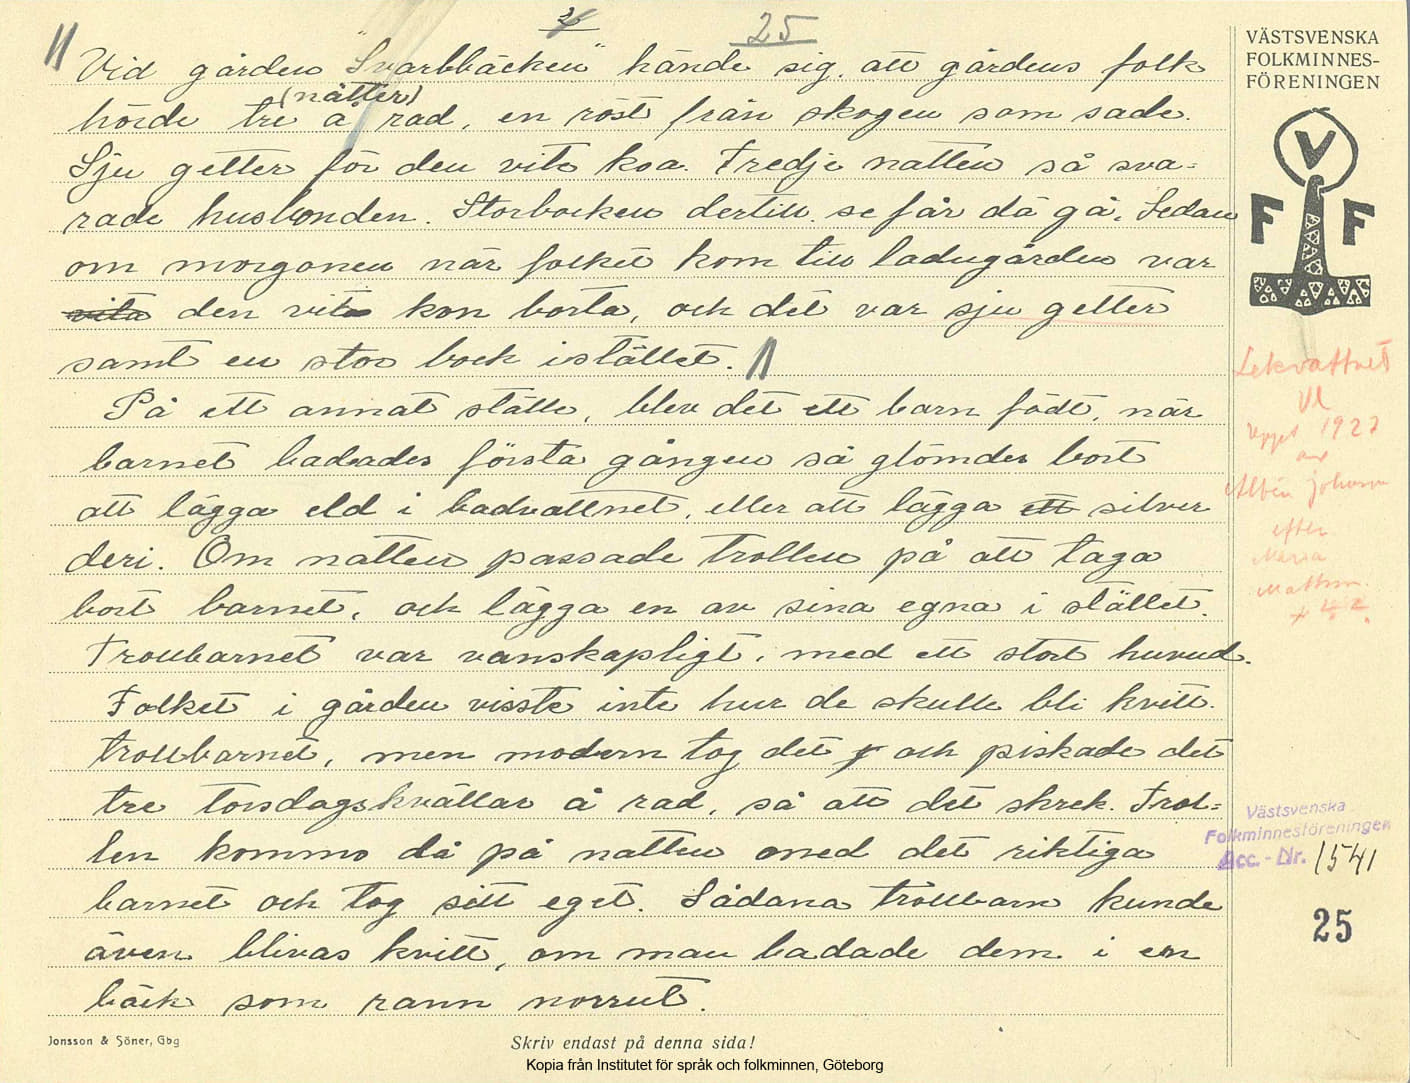 2
25
VÄSTSVENSKA
FOLKMINNES-
FÖRENINGEN
V
F F
Vid gården "Svarbbäcken" hände sig, att gårdens folk
(nätter)
hörde tre å rad, en röst från skogen som sade.
Sju getter för den vita koa. Tredje natten så sva=
rade husbonden. Storbocken dertill. se får då gå. Sedan
om morgonen när folket kom till ladugården var
vita den vita kon borta, och det var sju getter
samt en stor bock istället.
På ett annat ställe, blev det ett barn födt, när
barnet badades första gången så glömdes bort
att lägga eld i badvattnet, eller att lägga ett silver
deri. Om natten passade trollen på att taga
bort barnet, och lägga en av sina egna i stället.
Trollbarnet var vanskapligt, med ett stort huvud.
Folket i gården visste inte hur de skulle bli kvitt
trollbarnet, men modern tog det och piskade det
tre torsdagskvällar å rad, så att det skrek. Trol=
len kommo då på natten med det riktiga
barnet och tog sitt eget. Sådana trollbarn kunde
även blivas kvitt, om man badade dem i en
bäck som rann norrut.
Lekvattnet
Vl
uppt 1927
av
Albin Johansson
efter
Maria
Västsvenska
Folkminnesföreningen
Acc.-Nr. 1541
25
Jonsson & Söner, Gbg
Skriv endast på denna sida!
Kopia från Institutet för språk och folkminnen, Göteborg